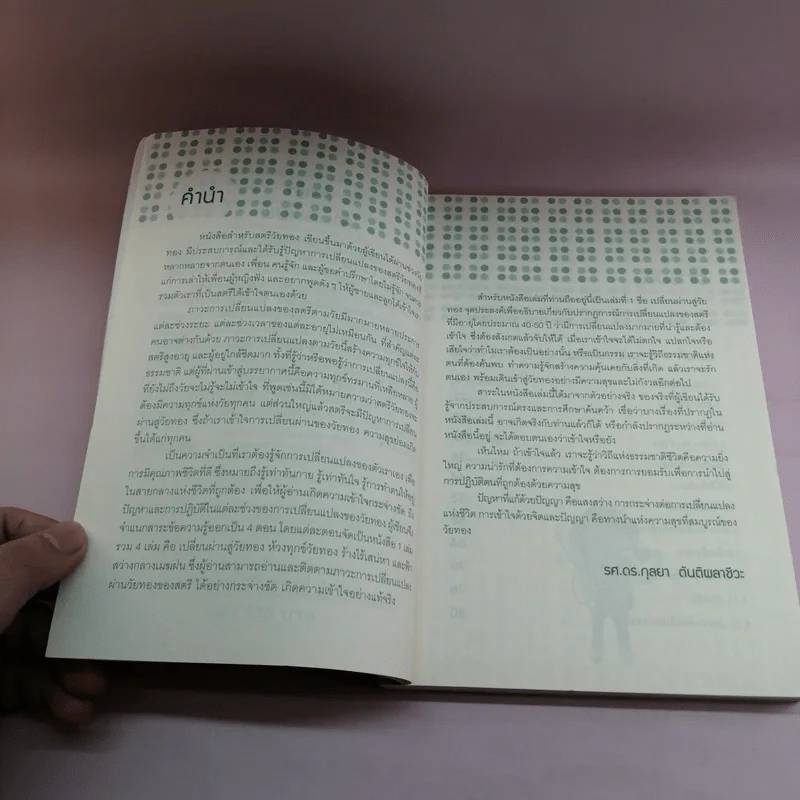 คำนำ
หนังสือสำหรับสตรีวัยทอง เขียนขึ้นมาด้วยผู้เขียนได้ผ่านช่วงวัย
ทอง มีประสบการณ์และได้รับรู้ปัญหาการเปลี่ยนแปลงของสตรีวัยทองที่
หลากหลายจากตนเอง เพื่อน คนรู้จัก และผู้ขอคำปรึกษาโดยไม่รู้จัก
แก่การเล่าให้เพื่อนผู้หญิงฟัง และอยากพูดดังๆ ให้ผู้ชายและลูกได้เข้าใจ
รวมตัวเราที่เป็นสตรีได้เข้าใจตนเองด้วย
ภาวะการเปลี่ยนแปลงของสตรีตามวัยมีมากมายหลายประการ
แต่ละช่วงระยะ แต่ละช่วงเวลาของแต่ละอายุไม่เหมือนกัน ที่สำคัญแต่ละ
คนอาจต่างกันด้วย ภาวะการเปลี่ยนแปลงตามวัยนี้สร้างความทุกข์ใจให้กับ
สตรีสูงอายุ และผู้อยู่ใกล้ชิดมาก ทั้งที่รู้ว่าหรือพอรู้ว่าการเปลี่ยนแปลงนี้เป็น
ธรรมชาติ แต่ผู้ที่ผ่านเข้าสู่บรรยากาศนี้คือความทุกข์ทรมานที่เหลือหลาย ผู้
ที่ยังไม่ถึงวัยจะไม่รู้จะไม่เข้าใจ ที่พูดเช่นนี้มิได้หมายความว่าสตรีวัยทองจะ
ต้องมีความทุกข์แห่งวัยทุกคน แต่ส่วนใหญ่แล้วสตรีจะมีปัญหาการเปลี่ยน
ผ่านสู่วัยทอง ซึ่งถ้าเราเข้าใจการเปลี่ยนผ่านของวัยทอง ความสุขย่อมเกิด
ขึ้นได้แก่ทุกคน
เป็นความจำเป็นที่เราต้องรู้จักการเปลี่ยนแปลงของตัวเราเอง เพื่อ
การมีคุณภาพชีวิตที่ดี ซึ่งหมายถึงรู้เท่าทันกาย รู้เท่าทันใจ รู้การทำตนให้อยู่
ในสายกลางแห่งชีวิตที่ถูกต้อง เพื่อให้ผู้อ่านเกิดความเข้าใจกระจ่างชัด ถึง
ปัญหาและการปฏิบัติในแต่ละช่วงของการเปลี่ยนแปลงของวัยทอง ผู้เขียนจึง
จำแนกสาระข้อความรู้ออกเป็น 4 ตอน โดยแต่ละตอนจัดเป็นหนังสือ 1 เล่ม
รวม 4 เล่ม คือ เปลี่ยนผ่านสู่วัยทอง ห้วงทุกข์วัยทอง ร้างไร้เสน่หา และฟ้า
สว่างกลางเมฆฝน ซึ่งผู้อ่านสามารถอ่านและติดตามภาวะการเปลี่ยนแปลง
ผ่านวัยทองของสตรี ได้อย่างกระจ่างชัด เกิดความเข้าใจอย่างแท้จริง
สำหรับหนังสือเล่มที่ท่านถืออยู่นี้เป็นเล่มที่ 1 ชื่อ เปลี่ยนผ่านสู่วัย
ทอง จุดประสงค์เพื่ออธิบายเกี่ยวกับปรากฏการณ์การเปลี่ยนแปลงของสตรี
ที่มีอายุโดยประมาณ 40-50 ปี ว่ามีการเปลี่ยนแปลงมากมายที่น่ารู้และต้อง
เข้าใจ ซึ่งต้องสังเกตแล้วจับให้ได้ เมื่อเราเข้าใจจะได้ไม่ตกใจ แปลกใจหรือ
เสียใจว่าทำไมเราต้องเป็นอย่างนั้น หรือเป็นกรรม เราจะรู้วิถีธรรมชาติแห่ง
ตนที่ต้องค้นพบ ทำความรู้จักสร้างความคุ้นเคยกับสิ่งที่เกิด แล้วเราจะรัก
ตนเอง พร้อมเดินเข้าสู่วัยทองอย่างมีความสุขและไม่กังวลอีกต่อไป
สาระในหนังสือเล่มนี้ได้มาจากตัวอย่างจริง ของจริงที่ผู้เขียนได้รับ
รู้จากประสบการณ์ตรงและการศึกษาค้นคว้า เชื่อว่าบางเรื่องที่ปรากฏใน
หนังสือเล่มนี้ อาจเกิดจริงกับท่านแล้วก็ได้ หรือกำลังปรากฏระหว่างที่อ่าน
หนังสือนี้อยู่ จะได้ตอบตนเองว่าเข้าใจหรือยัง
เห็นไหม ถ้าเข้าใจแล้ว เราจะรู้ว่าวิถีแห่งธรรมชาติชีวิตคือความยิ่ง
ใหญ่ ความน่ารักที่ต้องการความเข้าใจ ต้องการการยอมรับเพื่อการนำไปสู่
การปฏิบัติตนที่ถูกต้องด้วยความสุข
ปัญหาที่แก้ด้วยปัญญา คือแสงสว่าง การกระจ่างต่อการเปลี่ยนแปลง
แห่งชีวิต การเข้าใจด้วยจิตและปัญญา คือทางนำแห่งความสุขที่สมบูรณ์ของ
วัยทอง
รศ.ดร.กุลยา ตันติผลาชีวะ